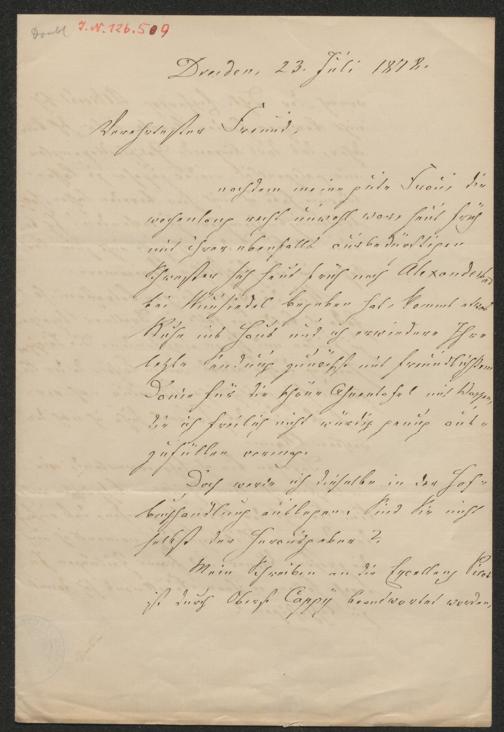 Doubl J.N. 126.509
Dresden, 23. Juli 1878.
Verehrtester Freund,
nachdem meine gute Frau, die
wochenlang recht unwohl war, heut früh
mit ihrer ebenfalls curbedürftigen
Schwester sich heut früh nach Alexandersbad
bei Wunsiedel begeben hat, kommt etwas
Ruhe ins Haus und ich erwiedere Ihre
letzte Sendung zunächst mit freundlichstem
Danke für die schöne Ahnentafel mit Wappen,
die ich freilich nicht würdig genug aus-
zufüllen vermag.
Doch werde ich dieselbe in der Hof-
buchhandlung auslegen. Sind Sie nicht
selbst der Herausgeber?
Mein Schreiben an die Excellenz
ist durch Oberst Cappy beantwortet worden,